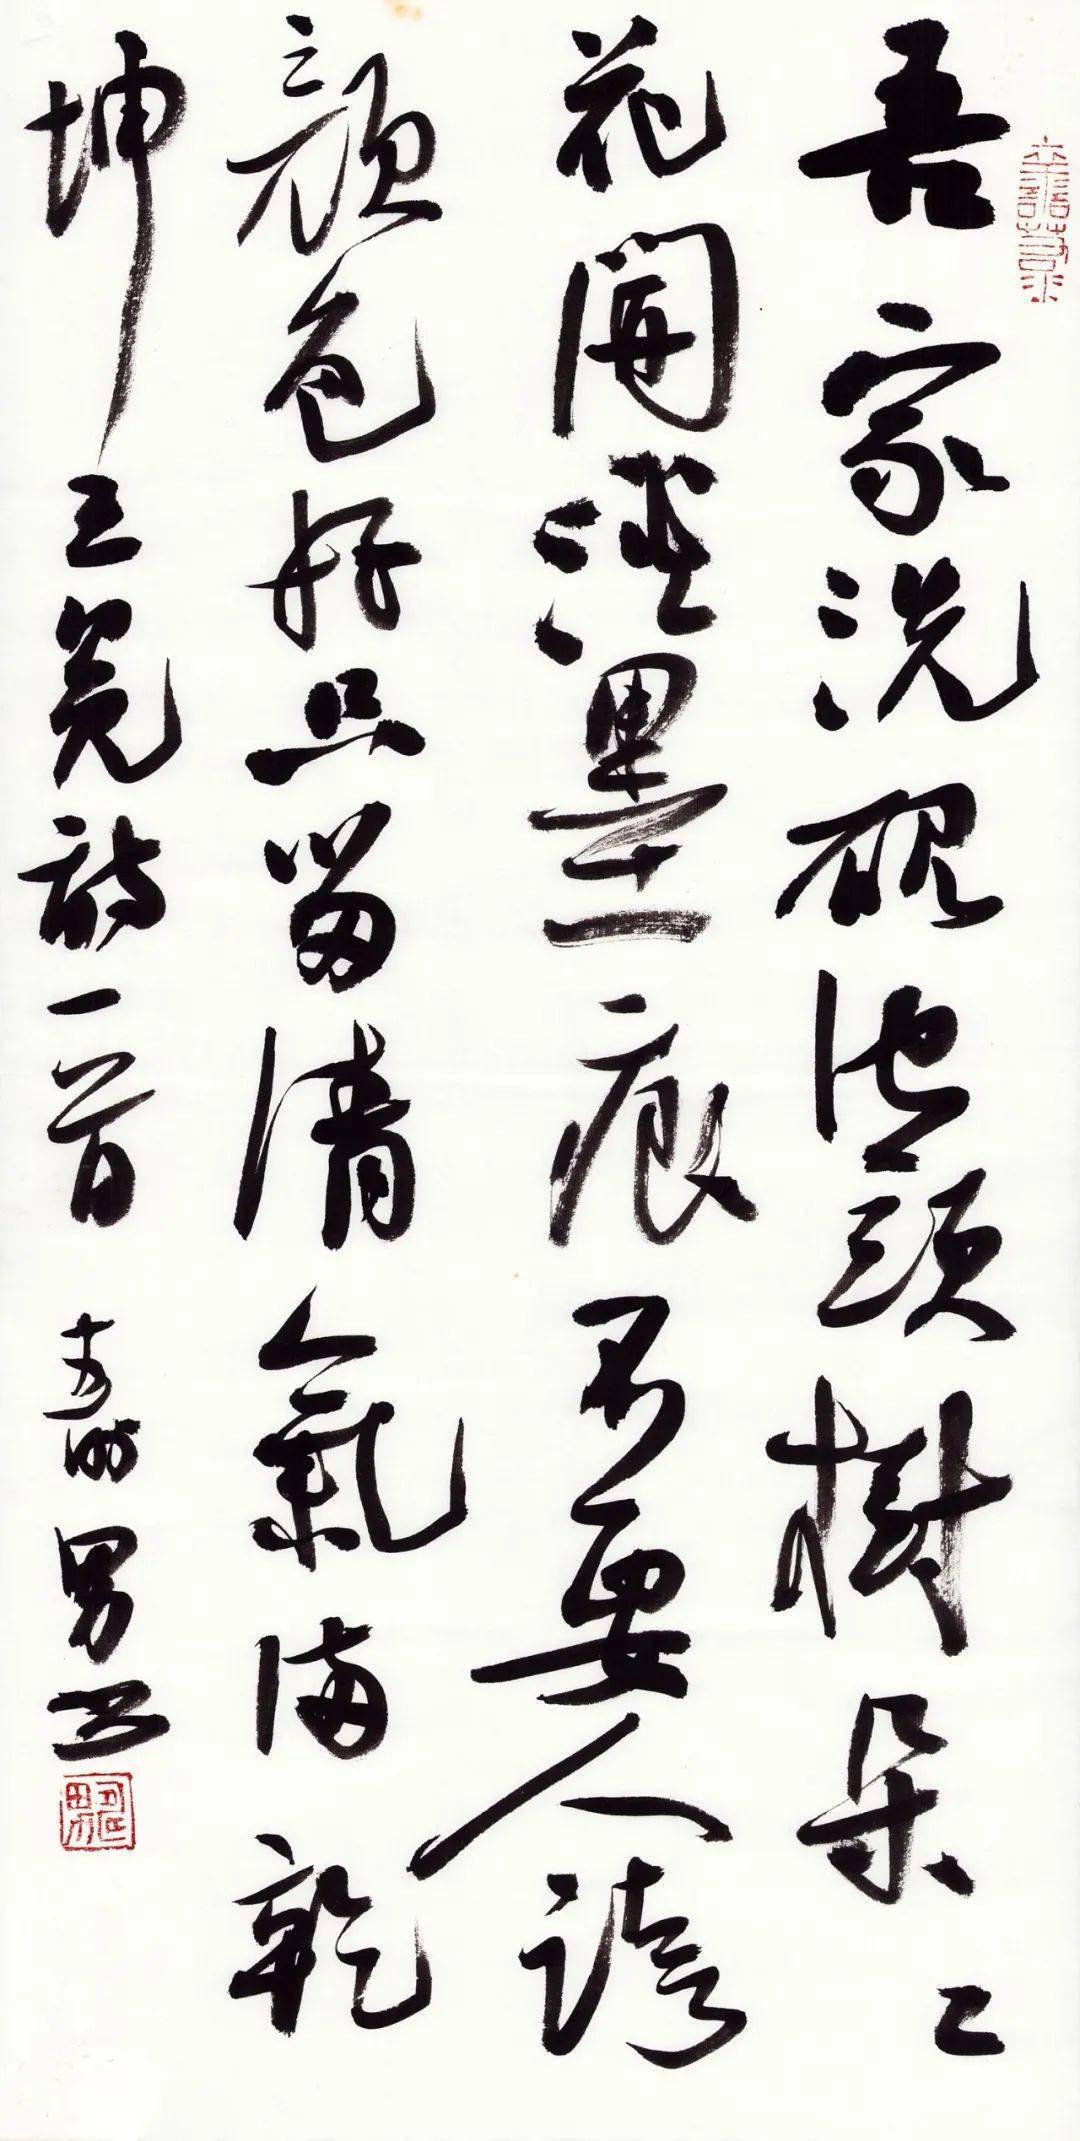 吾家洗硯池頭樹朵々
花開淡墨痕不要人誇
顏色好只留清氣滿乾
坤 王冕詩一首 男书